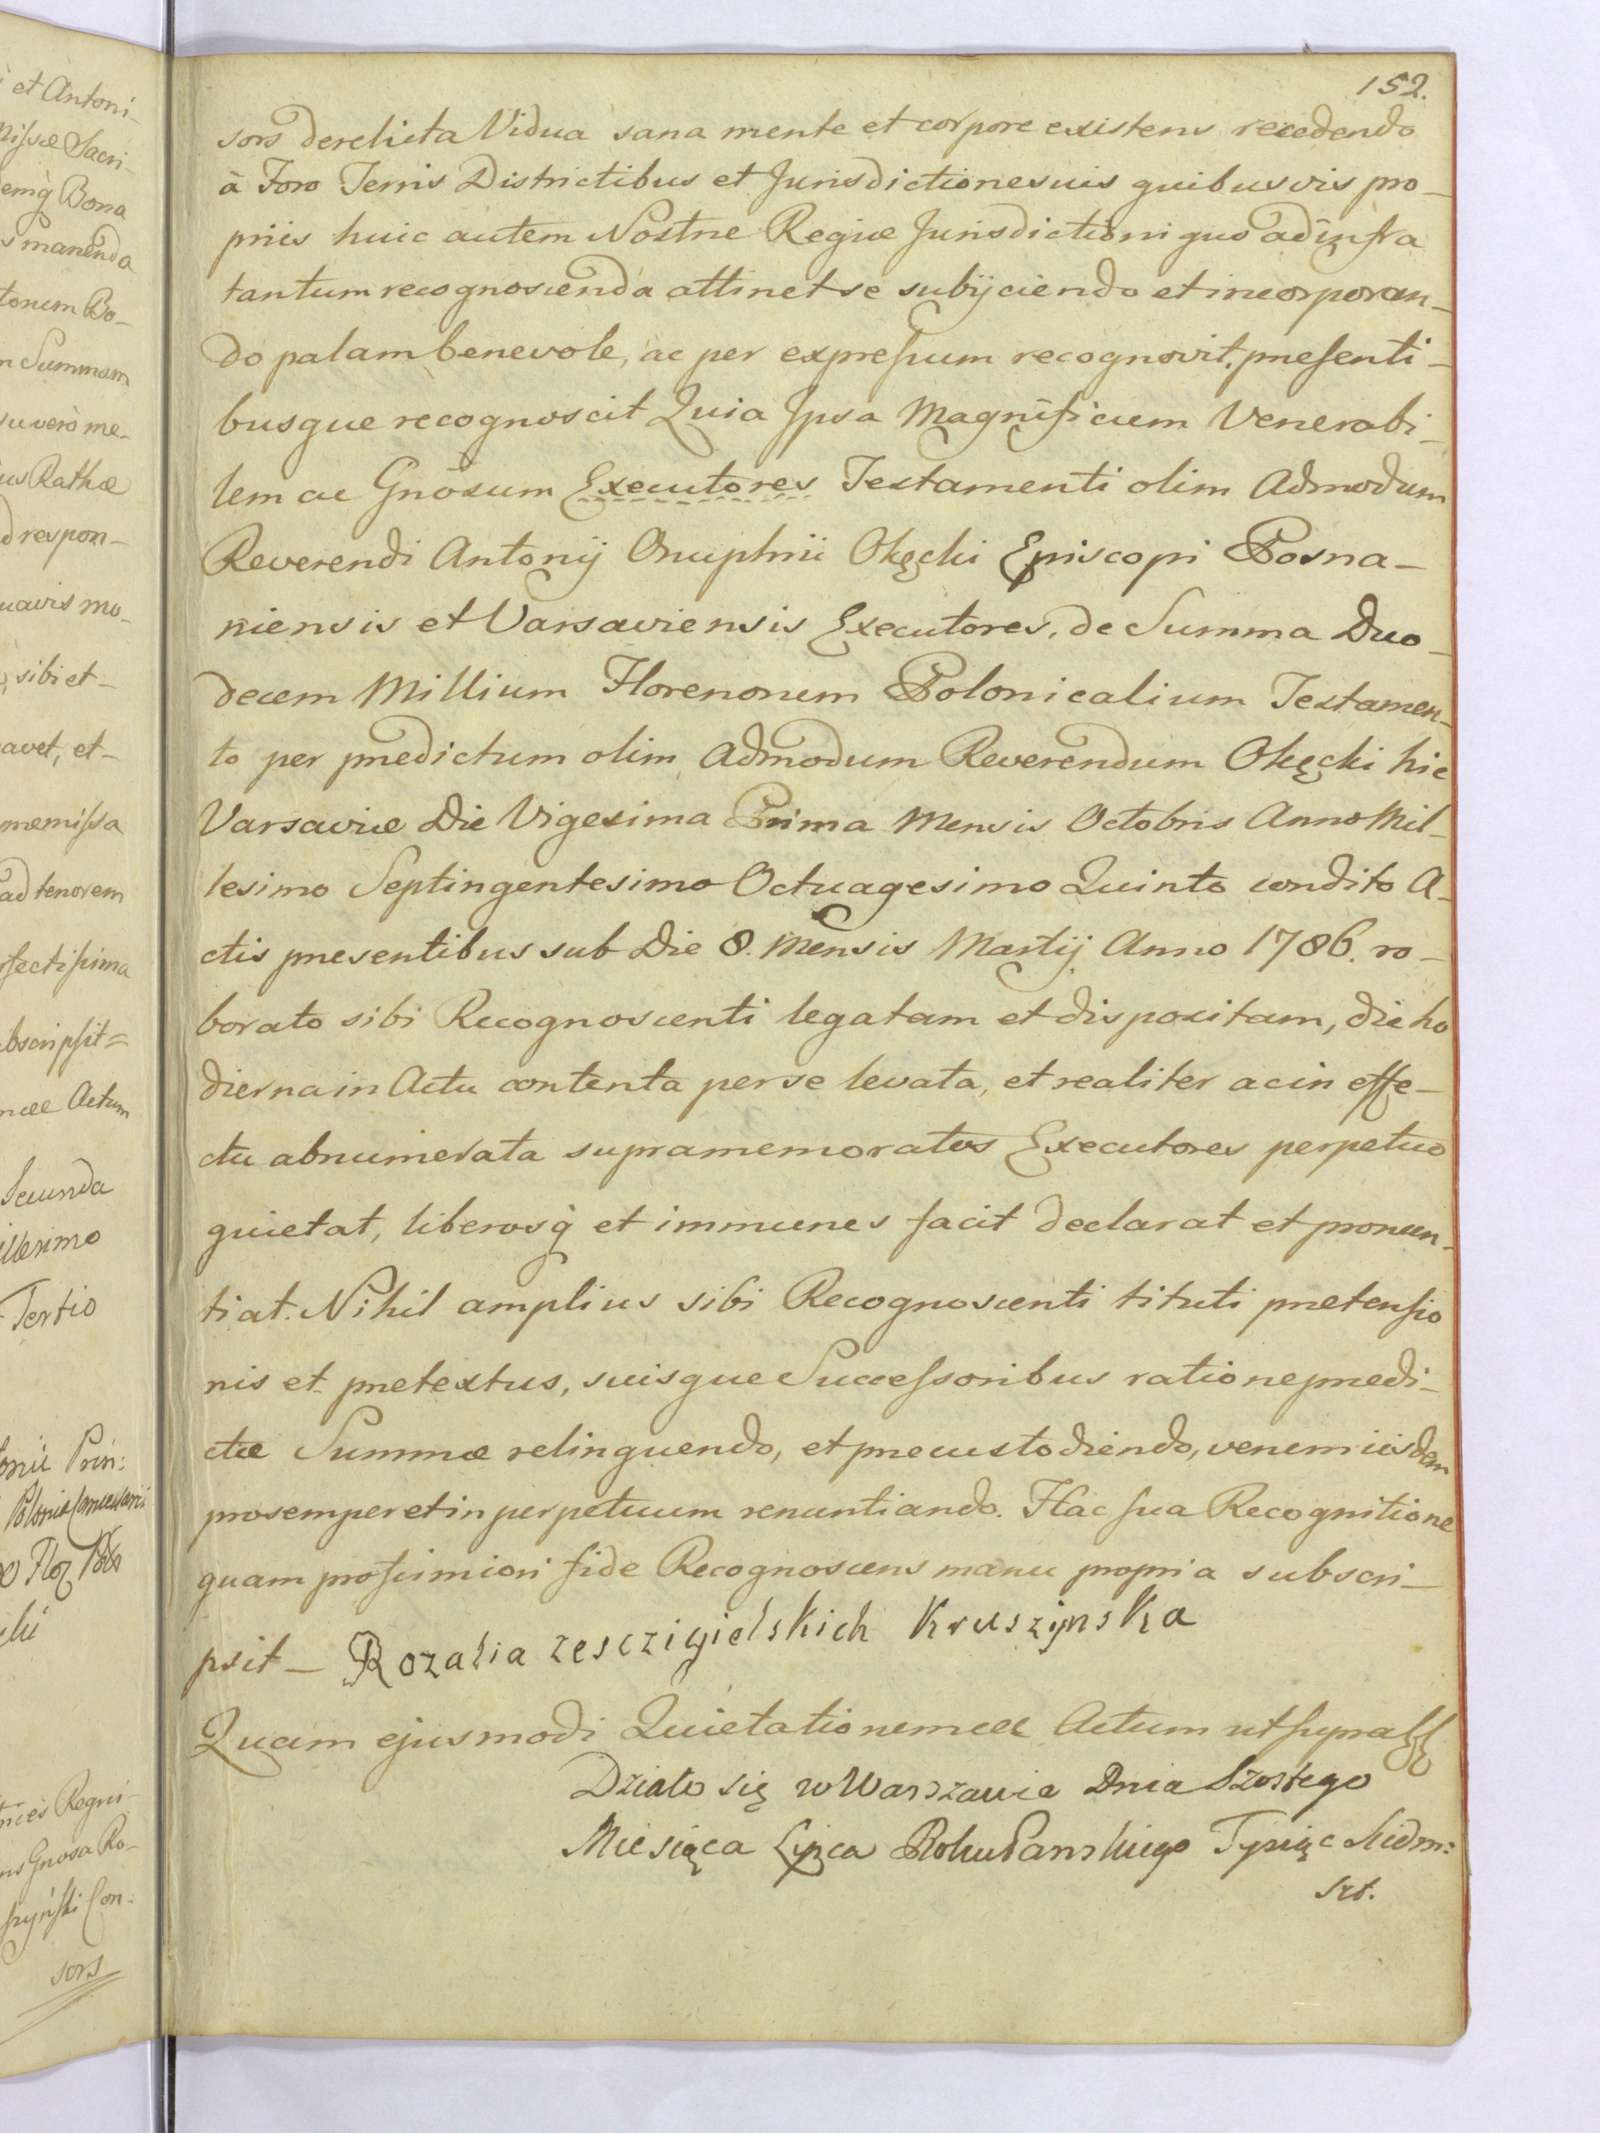 i et Antoni-
Missæ Sacri-
emq̀ Bona
s manenda
tonum Bo-
m Summam
su verò me-
us Rathæ
d respon-
uavis mo-
sibi et-
avet, et-
præmissa
ad tenorem
rfectissima
bscripsit=
næe Actum
Secunda
illesimo
Tertio
onii Prin:
Flor
sors
152.
sors derelicta Vidua sana mente et corpore existens recedendo
à Foro Terris Districtibus et Jurisdictionesuis quibusvis pro-
priis huic autem Nostræ Regiæ Jurisdictioni quo ad infra
tantum recognoscenda attinet se subijciendo et incorporan-
do palam benevole, ac per expressum recognovit, præsenti-
busque recognoscit Quia Ipsa Magnificum Venerabi-
lem ac Gnõsum Executores Testamenti olim Admodum
Reverendi Antonij Onuphrii Okęcki Episcopi Posna-
niensis et Varsaviensis Executores, de Summa Duo-
decem Millium Florenorum Polonicalium Testamen-
to per prædictum olim Admodum Reverendum Okęcki hic
Varsaviæ Die Vigesima Prima Mensis Octobris Anno Mil-
lesimo Septingentesimo Octuagesimo Quinto condito A-
ctis præsentibus sub Die 8. Mensis Martij Anno 1786. ro-
borato sibi Recognoscenti legatam et dispositam, die ho
dierna in Actu contenta per se levata, et realiter ac in effe-
ctu abnumerata supramemoratos Executores perpetuo
quietat, liberosq̀ et immunes facit declarat et pronun-
tiat. Nihil amplius sibi Recognoscenti tituti prætensio
nis et prætextus, suisque Successoribus ratione prædi-
ctæ Summæ relinquendo, et præcustodiendo, verum iisdem
pro semper et in perpetuum renuntiando. Hac sua Recognitione
quam pro firmiori fide Recognoscens manu propria subscri-
psit - Rozalia zesczigielskich Kruszynska
Quam ejusmodi Quietationem ad Actum ut supra
Działo się w Warszawie Dnia Szostego
Miesięca Lipca Roku Panskiego Tysiąc Siedm:
set.